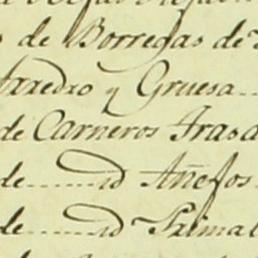 s de Borregas de
y Gruesa
de Carneros Trasa
de id Añejos
de id Primal